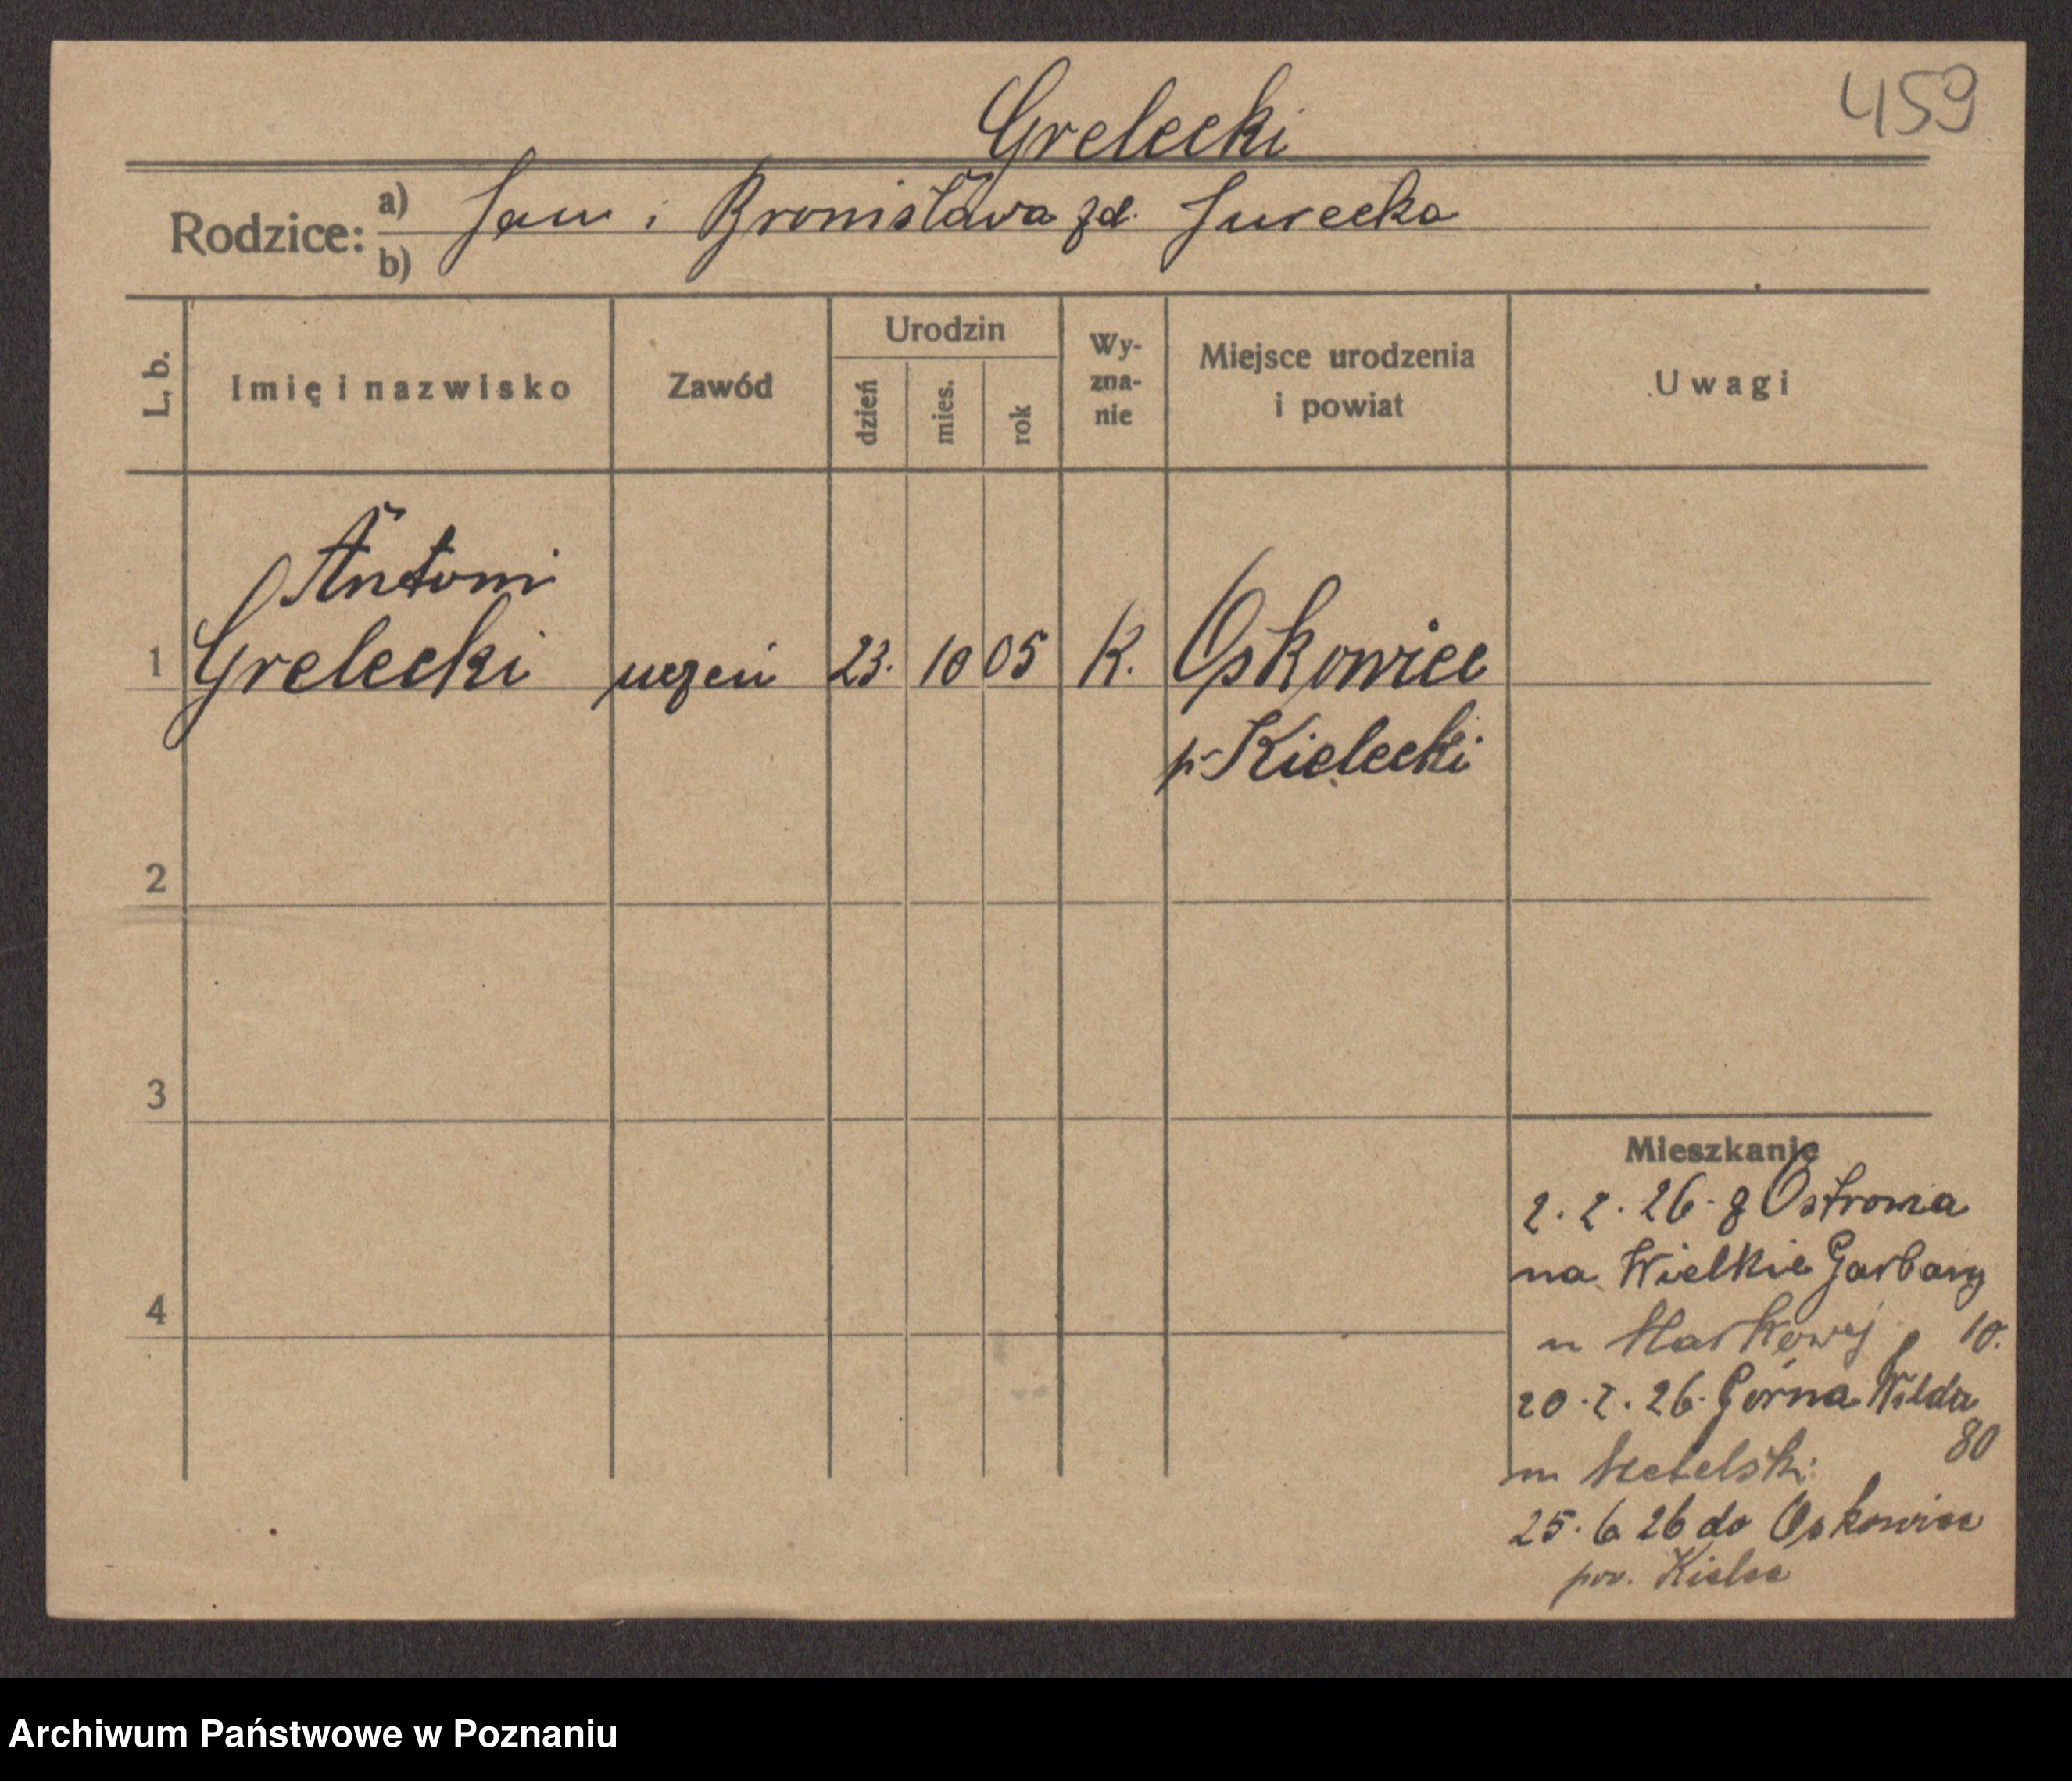 459
Grelecki
Rodzice: a) Jan i Bronisława zd. Jurecka
b)
L. b. Imię i nazwisko Zawód Urodzin dzień mies. rok Wy-zna-nie Miejsce urodzenia i powiat Uwagi
Antoni
1 Grelecki uczeń 23. 10 05 K. Oskowiec
p. Kielecki
2
3
4
Mieszkanie
2.2.26. z Ostrowa
na Wielkie Garbary
u 10.
20.2.26. Górna Wilda
80
25.6 26 do Oskowiec
pow. Kielce
Archiwum Państwowe w Poznaniu